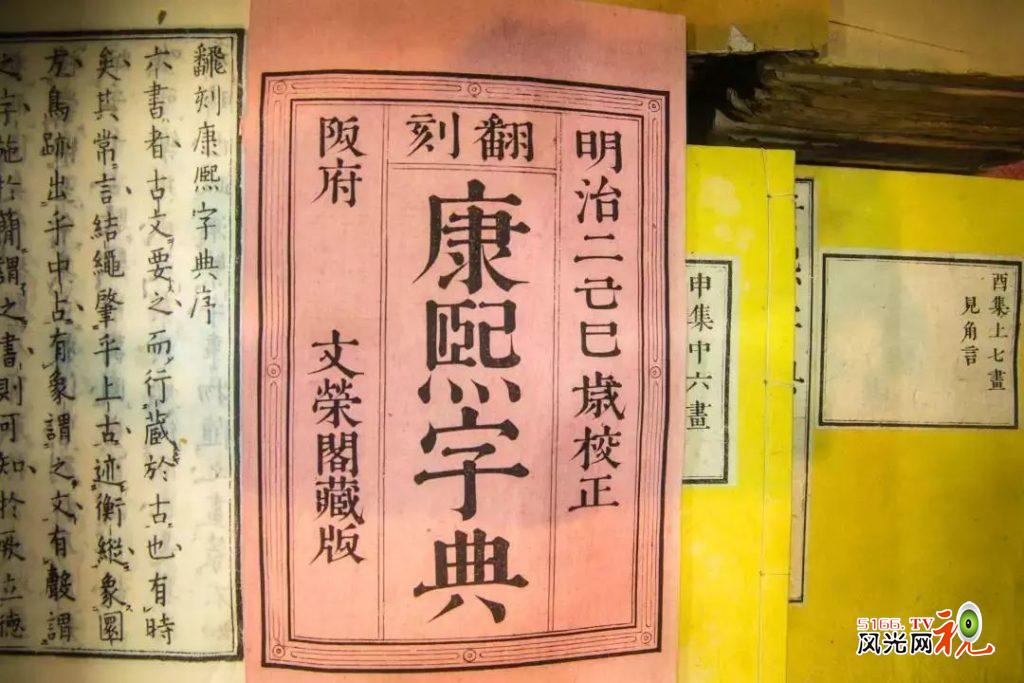 酉集上七畫
見角言
申集中六畫
明治二己巳歳校正
翻刻
康熙字典
阪府 文榮閣藏版
飜刻康熙字典序
六書者古文要之而行蔵於古也有時
矣其常言結繩肇乎上古迹衡縱象圜
方鳥跡出乎中占有象謂之文有聲謂
之字施於簡謂之書則可知於厥立德
5166.TV
风光网视